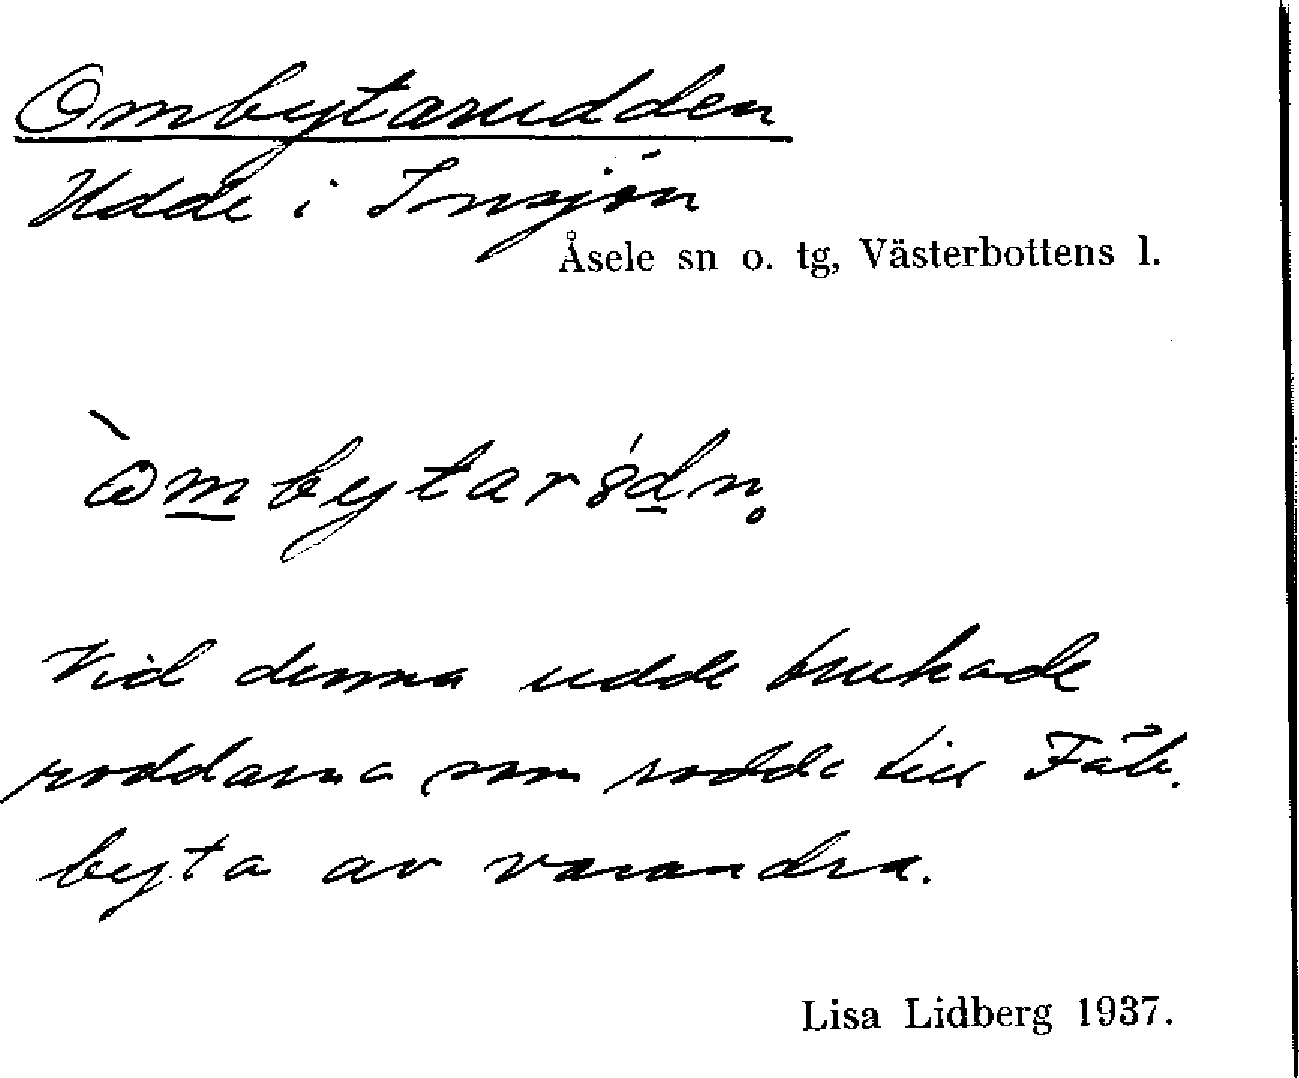 Ombytarudden
Udde i Insjön
Åsele sn o. tg, Västerbottens l.
òmbytarśdn̥
Vid denna udde brukade
roddarna som rodde till Fäb.
byta av varandra.
Lisa Lidberg 1937.